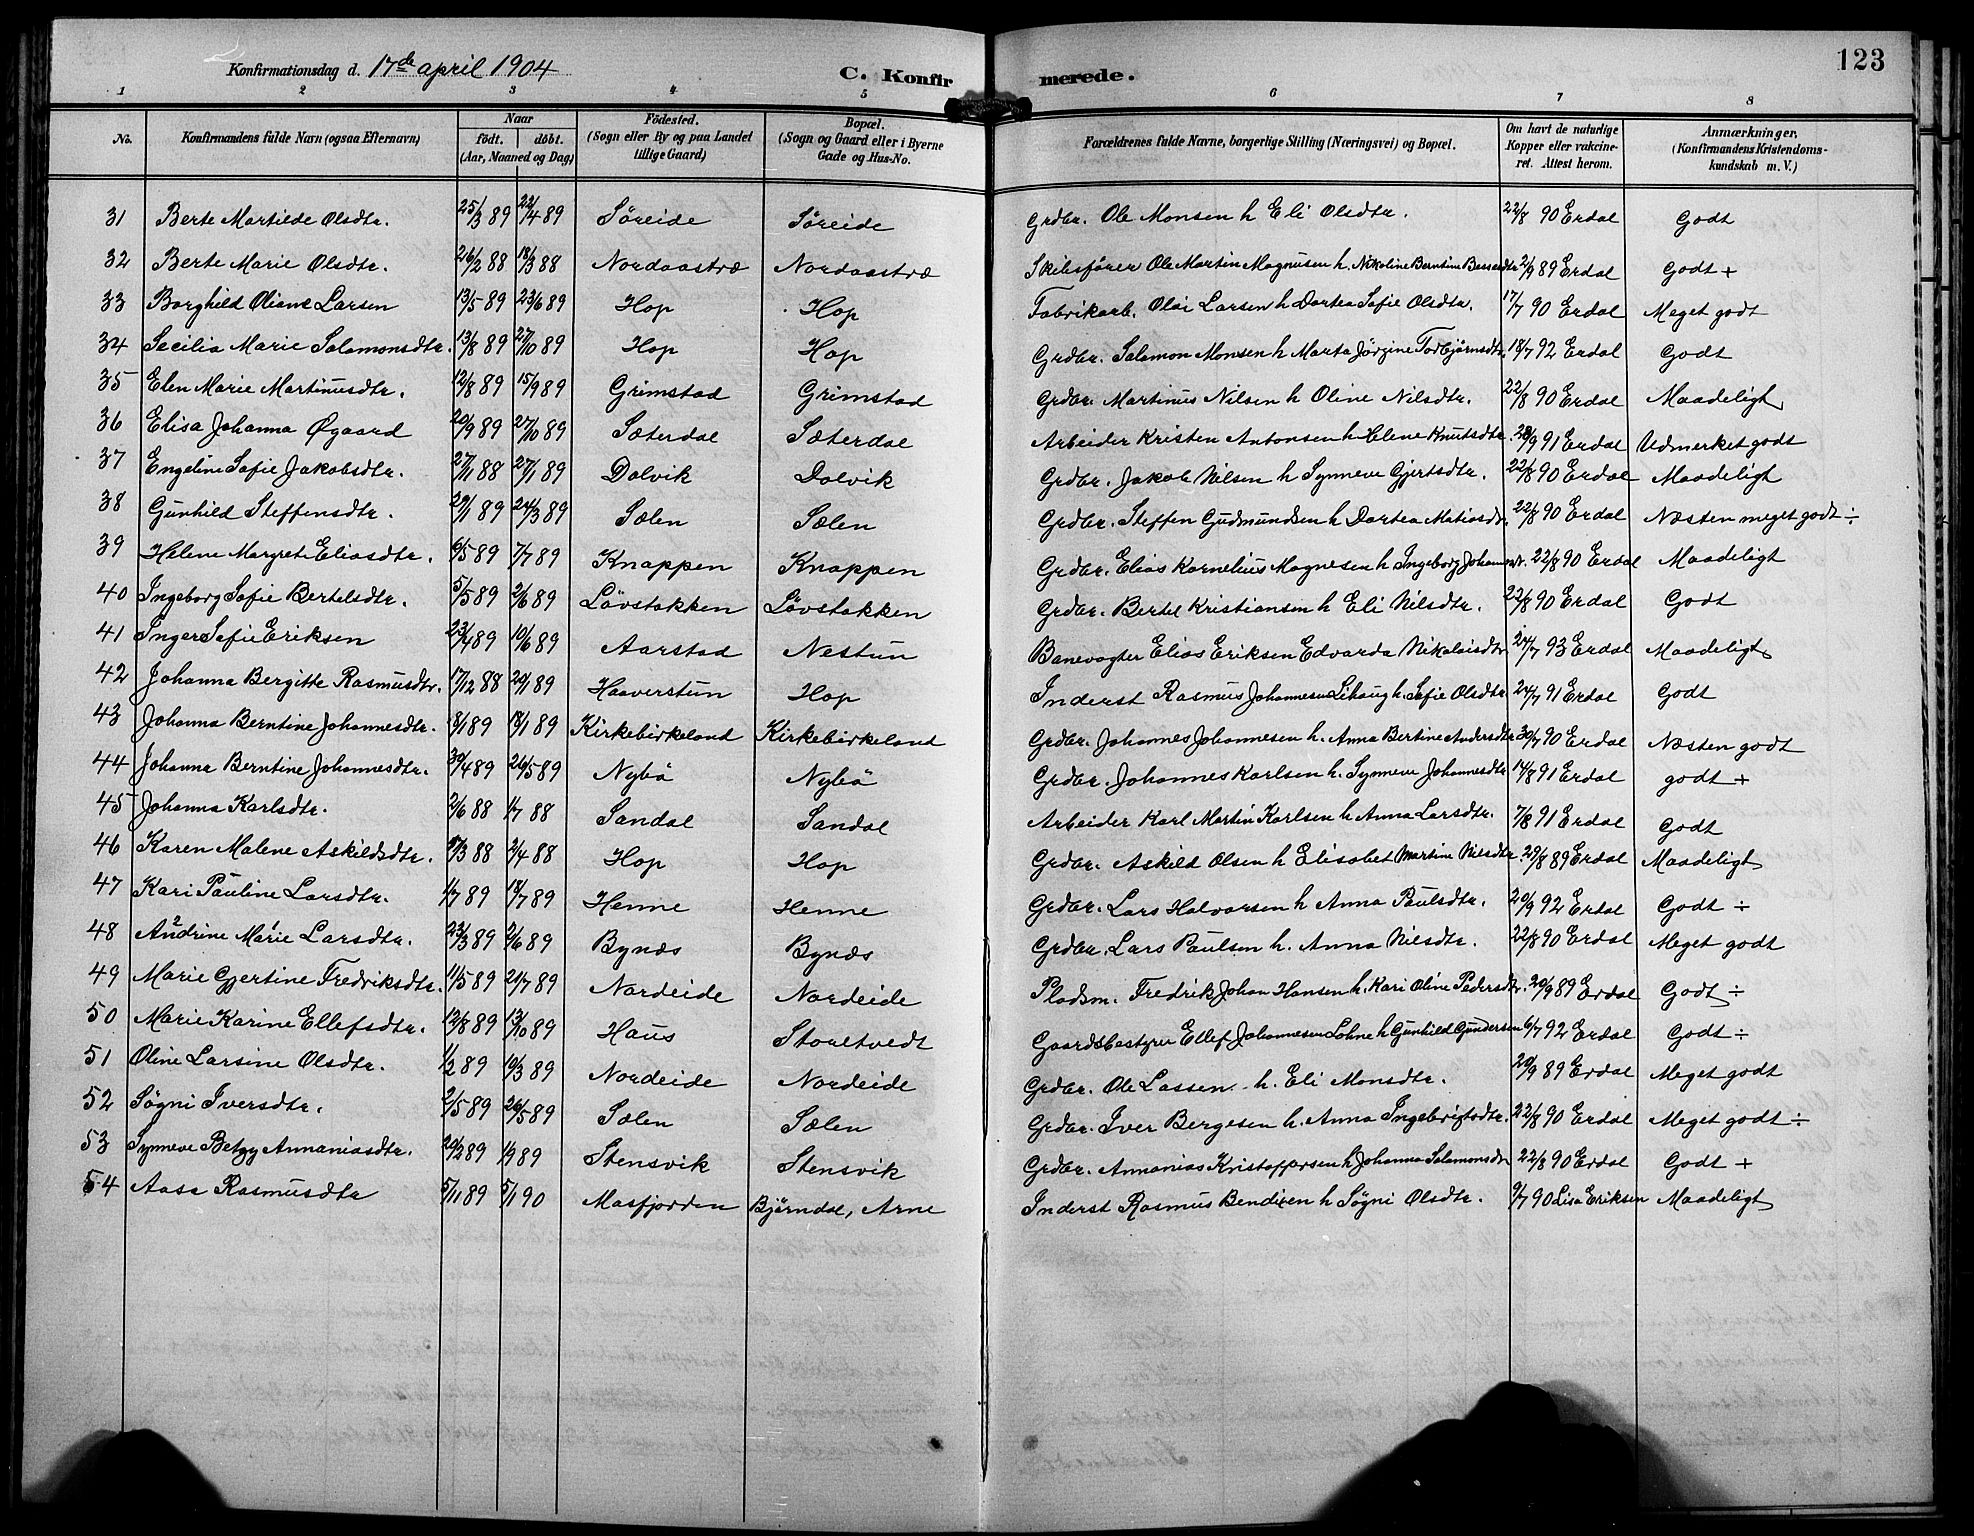 Konfirmationsdag d. 17de april 1904 C. Konfir merede. 123
1 2 3 4 5 6 7 8
No. Konfirmandens fulde Navn (ogsaa Efternavn) Naar født. døbt. (Aar, Maaned og Dag) Fødested. (Sogn eller By og paa Landet tillige Gaard) Bopæl. (Sogn og Gaard eller i Byerne Gade og Hus-No. Forældrenes fulde Navne, borgerlige Stilling (Næringsvei) og Bopæl. Om havt de naturlige Kopper eller vakcineret. Attest herom. Anmærkninger, (Konfirmandens Kristendomskundskab m. V.)
31 Berte Martilde Olsdtr. 25/3 89 22/4 89 Søreide Søreide Grdbr. Ole Monsen h Eli Olsdtr. 22/8 90 Erdal Godt
32 Berte Marie Olsdtr. 26/2 88 18/3 88 Nordaastræ Nordaastræ Skibsfører Ole Martin Magnusen h. Nikoline Berntine 2/9 89 Erdal Godt +
33 Borghild Oliane Larsen 13/5 89 23/6 89 Hop Hop Fabrikarb. Olai Larsen h Dortea Sofie Olsdtr. 17/7 90 Erdal Meget godt
34 Secilia Marie Salamonsdtr. 13/8 89 27/10 89 Hop Hop Grdbr. Salamon Monsen h Marta Jörgine Torbjørnsdtr. 18/7 92 Erdal Godt
35 Elen Marie Martinusdtr. 12/8 89 15/9 89 Grimstad Grimstad Grdbr. Martinus Nilsen h Oline Nilsdtr. 22/8 90 Erdal Maadeligt
36 Elisa Johanna Øgaard 20/9 89 27/10 89 Sæterdal Sæterdal Arbeider Kristen Antonsen h Helene Knutsdtr. 28/9 91 Erdal Udmerket godt
37 Engeline Sofie Jakobsdtr. 27/11 88 27/1 89 Dolvik Dolvik Grdbr. Jakob Nilsen h Synneve Gjertsdtr. 22/8 90 Erdal Maadeligt
38 Gunhild Steffensdtr. 29/1 89 24/3 89 Sælen Sælen Grdbr. Steffen Gudmundsen h Dortea Matiasdtr. 22/8 90 Erdal Næsten meget godt ÷
39 Helene Margrete Eliasdtr. 6/5 89 7/7 89 Knappen Knappen Grdbr. Elias Kornelius Magnesen h Ingeborg 22/8 90 Erdal Maadeligt
40 Ingeborg Sofie Bertelsdtr. 5/5 89 2/6 89 Lövstakken Lövstakken Grdbr. Bertel Kristiansen h Eli Nilsdtr. 22/8 90 Erdal Godt
41 Inger Sofie Eriksen 23/4 89 10/6 89 Aarstad Nestun Banevogter Elias Eriksen Edvarda Nikolaisdtr 24/7 93 Erdal Maadeligt
42 Johanna Bergitte Rasmusdtr. 17/12 88 20/1 89 Haaverstun Hop Inderst Rasmus Johannesen Lihaug h. Sofie Olsdtr. 24/7 91 Erdal Godt
43 Johanna Berntine Johannesdtr. 8/1 89 18/1 89 Kirkebirkeland Kirkebirkeland Grdbr. Johannes Johannesen h. Anna Bertine Andersdtr 30/7 90 Erdal Næsten godt
44 Johanna Berntine Johannesdtr. 30/4 89 26/5 89 Nybö Nybö Grdbr. Johannes Karlsen h. Synneve Johannesdtr 14/8 91 Erdal godt +
45 Johanna Karlsdtr. 2/6 88 1/7 88 Sandal Sandal Arbeider Karl Martin Karlsen h Anna Larsdtr. 7/8 91 Erdal Godt
46 Karen Malene Askildsdtr. 8/3 88 2/4 88 Hop Hop Grdbr. Askild Olsen h Elisabet Martine Nilsdtr 29/8 89 Erdal Maadeligt
47 Kari Pauline Larsdtr. 1/7 89 18/7 89 Henne Henne Grdbr. Lars Halvorsen h Anna Paulsdtr. 20/9 92 Erdal Godt ÷
48 Andrine Marie Larsdtr. 23/3 89 2/6 89 Bynæs Bynæs Grdbr. Lars Paulsen h. Anna Nilsdtr. 22/8 90 Erdal Meget godt
49 Marie Gjertine Fredriksdtr. 11/5 89 21/7 89 Nordeide Nordeide Pladsm. Fredrik Johan Hansen h. Kari Oline Pedersdtr. 20/9 89 Erdal Godt ÷
50 Marie Karine Ellefsdtr. 12/8 89 13/10 89 Haus Storetvedt Gaardsbestyrer Ellef Johannesen Lohne h Gunhild Gundersen 6/7 92 Erdal Godt ÷
51 Oline Larsine Olsdtr. 1/2 89 10/3 89 Nordeide Nordeide Grdbr. Ole Lassen h. Eli Monsdtr. 20/9 89 Erdal Meget godt
52 Søgni Iversdtr. 2/5 89 26/5 89 Sælen Sælen Grdbr. Iver Bergesen h. Anna Ingebrigtsdtr. 22/8 90 Erdal Meget godt ÷
53 Synneve Betzy Annaniasdtr. 20/2 89 1/9 89 Stensvik Stensvik Grdbr. Annanias Kristoffersen h Johanna Salamonsdtr 22/8 90 Erdal Godt +
54 Aasa Rasmusdtr 5/11 89 5/1 90 Masfjorden Bjørndal, Arne Inderst Rasmus Bendixen h Søgni Olsdtr. 9/7 90 Lisa Eriksen Maadeligt